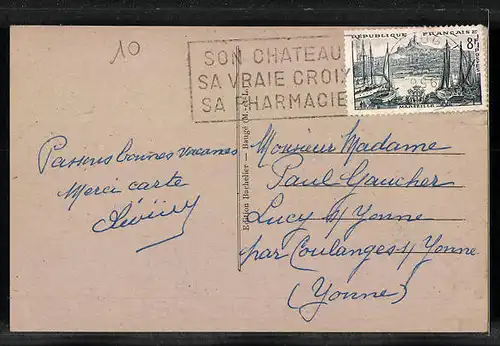 10
SON CHATEAU
SA VRAIE CROIX
SA PHARMACIE
RÉPUBLIQUE FRANÇAISE
8F
MARSEILLE
Passons bonnes vacances
Merci carte
Edition Bachelier - Baugé (M.-&-L.)
Monsieur Madame
Paul Gaucher
Lucy s/ Yonne
par Coulanges s/ Yonne
(Yonne)